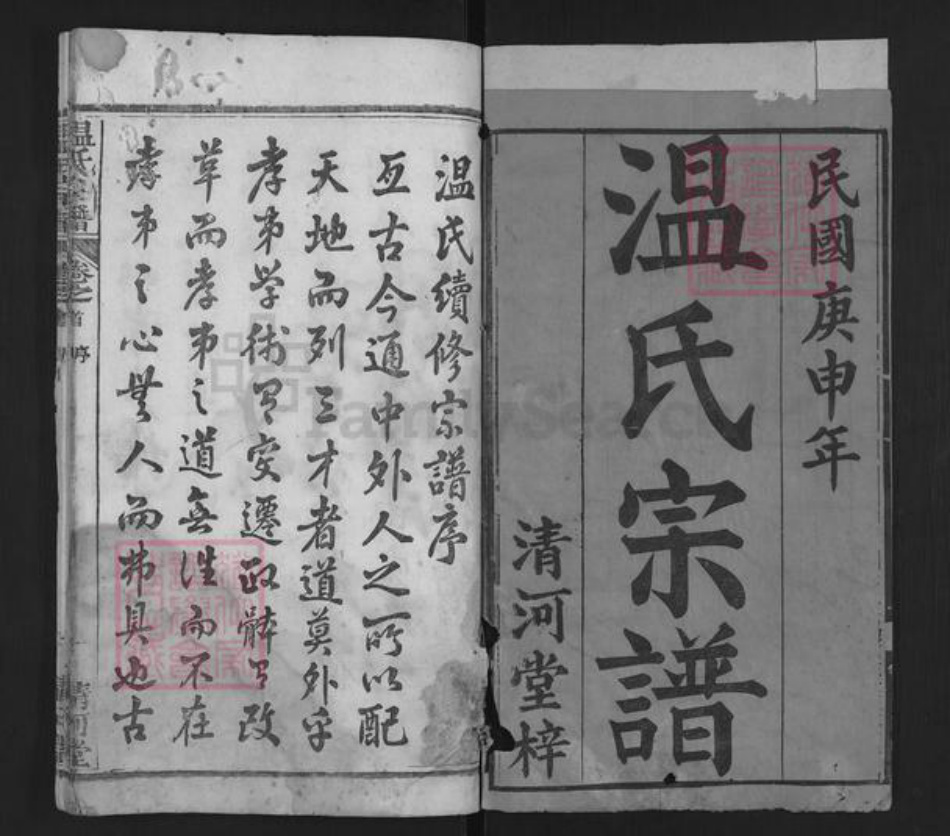 民國庚申年
温氏宗譜
清河堂梓
温氏續修宗譜序
亙古今通中外人之所以配
天地而列三才者道莫外乎
孝弟学術有変遷政體有改
革而孝弟之道無往而不在
孝弟之心無人而弗具也古
温氏宗譜
卷之首
序
清河堂
FamilySearch